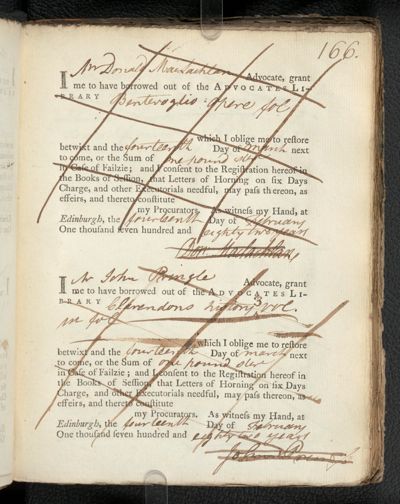 166.
I Mr Donald Maclachlan Advocate, grant
me to have borrowed out of the ADVOCATES LI-
BRARY Bentivoglio opere fol
which I oblige me to reſtore
betwixt and the fourteenth Day of march next
to come, or the Sum of one pound ster
in Caſe of Failzie; and I conſent to the Regiſtration hereof in
the Books of Seſſion, that Letters of Horning on ſix Days
Charge, and other Executorials needful, may paſs thereon, as
effeirs, and thereto conſtitute
my Procurators. As witneſs my Hand, at
Edinburgh, the fourteenth Day of february
One thouſand ſeven hundred and eighty two years
Don Maclachlan
I Mr John Pringle Advocate, grant
me to have borrowed out of the ADVOCATES LI-
BRARY Clarendons history vol.
3
in fol
which I oblige me to reſtore
betwixt and the fourteenth Day of march next
to come, or the Sum of one pound ster
in Caſe of Failzie; and I conſent to the Regiſtration hereof in
the Books of Seſſion, that Letters of Horning on ſix Days
Charge, and other Executorials needful, may paſs thereon, as
effeirs, and thereto conſtitute
my Procurators. As witneſs my Hand, at
Edinburgh, the fourteenth Day of february
One thouſand ſeven hundred and eighty two years
John Pringle